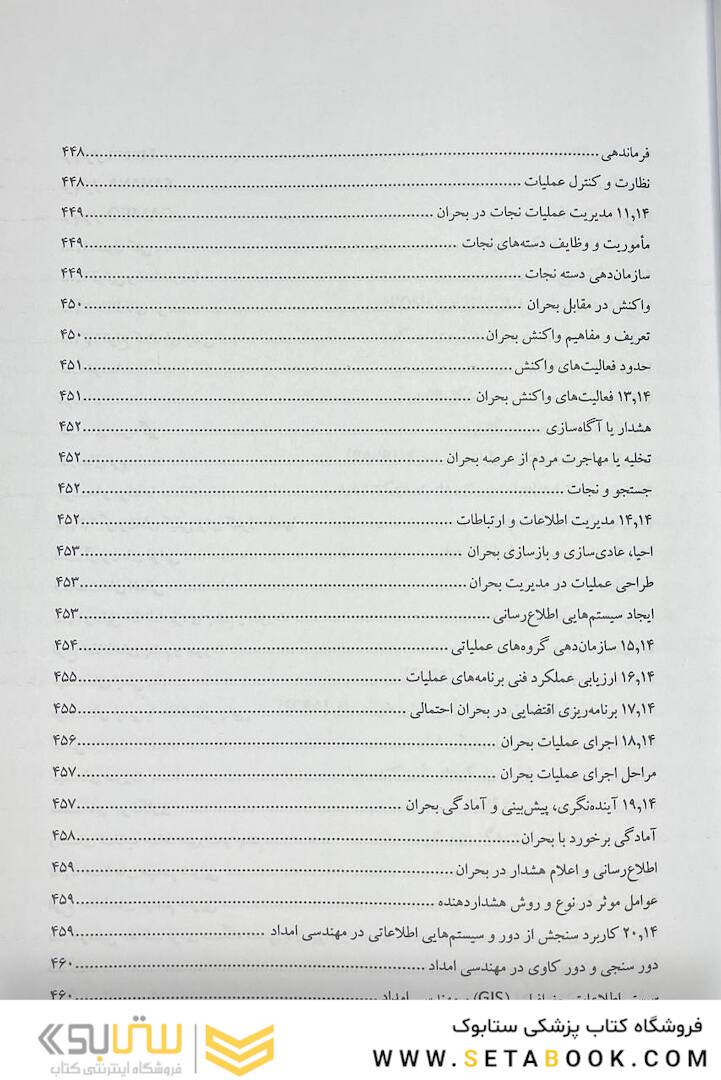 فرماندهی ..... ۴۴۸
نظارت و کنترل عملیات ..... ۴۴۸
۱۱,۱۴ مدیریت عملیات نجات در بحران ..... ۴۴۹
مأموریت و وظایف دسته‌های نجات ..... ۴۴۹
سازمان‌دهی دسته نجات ..... ۴۴۹
واکنش در مقابل بحران ..... ۴۵۰
تعریف و مفاهیم واکنش بحران ..... ۴۵۰
حدود فعالیت‌های واکنش ..... ۴۵۱
۱۳,۱۴ فعالیت‌های واکنش بحران ..... ۴۵۱
هشدار یا آگاه‌سازی ..... ۴۵۲
تخلیه یا مهاجرت مردم از عرصه بحران ..... ۴۵۲
جستجو و نجات ..... ۴۵۲
۱۴,۱۴ مدیریت اطلاعات و ارتباطات ..... ۴۵۲
احیا، عادی‌سازی و بازسازی بحران ..... ۴۵۳
طراحی عملیات در مدیریت بحران ..... ۴۵۳
ایجاد سیستم‌هایی اطلاع‌رسانی ..... ۴۵۳
۱۵,۱۴ سازمان‌دهی گروه‌های عملیاتی ..... ۴۵۴
۱۶,۱۴ ارزیابی عملکرد فنی برنامه‌های عملیات ..... ۴۵۵
۱۷,۱۴ برنامه‌ریزی اقتضایی در بحران احتمالی ..... ۴۵۵
۱۸,۱۴ اجرای عملیات بحران ..... ۴۵۶
مراحل اجرای عملیات بحران ..... ۴۵۷
۱۹,۱۴ آینده‌نگری، پیش‌بینی و آمادگی بحران ..... ۴۵۷
آمادگی برخورد با بحران ..... ۴۵۸
اطلاع‌رسانی و اعلام هشدار در بحران ..... ۴۵۹
عوامل موثر در نوع و روش هشداردهنده ..... ۴۵۹
۲۰,۱۴ کاربرد سنجش از دور و سیستم‌هایی اطلاعاتی در مهندسی امداد ..... ۴۵۹
دور سنجی و دور کاوی در مهندسی امداد ..... ۴۶۰
(GIS) ..... ۴۶۰
فروشگاه کتاب پزشکی ستابوک
WWW.SETABOOK.COM
ستابوک
فروشگاه اینترنتی کتاب